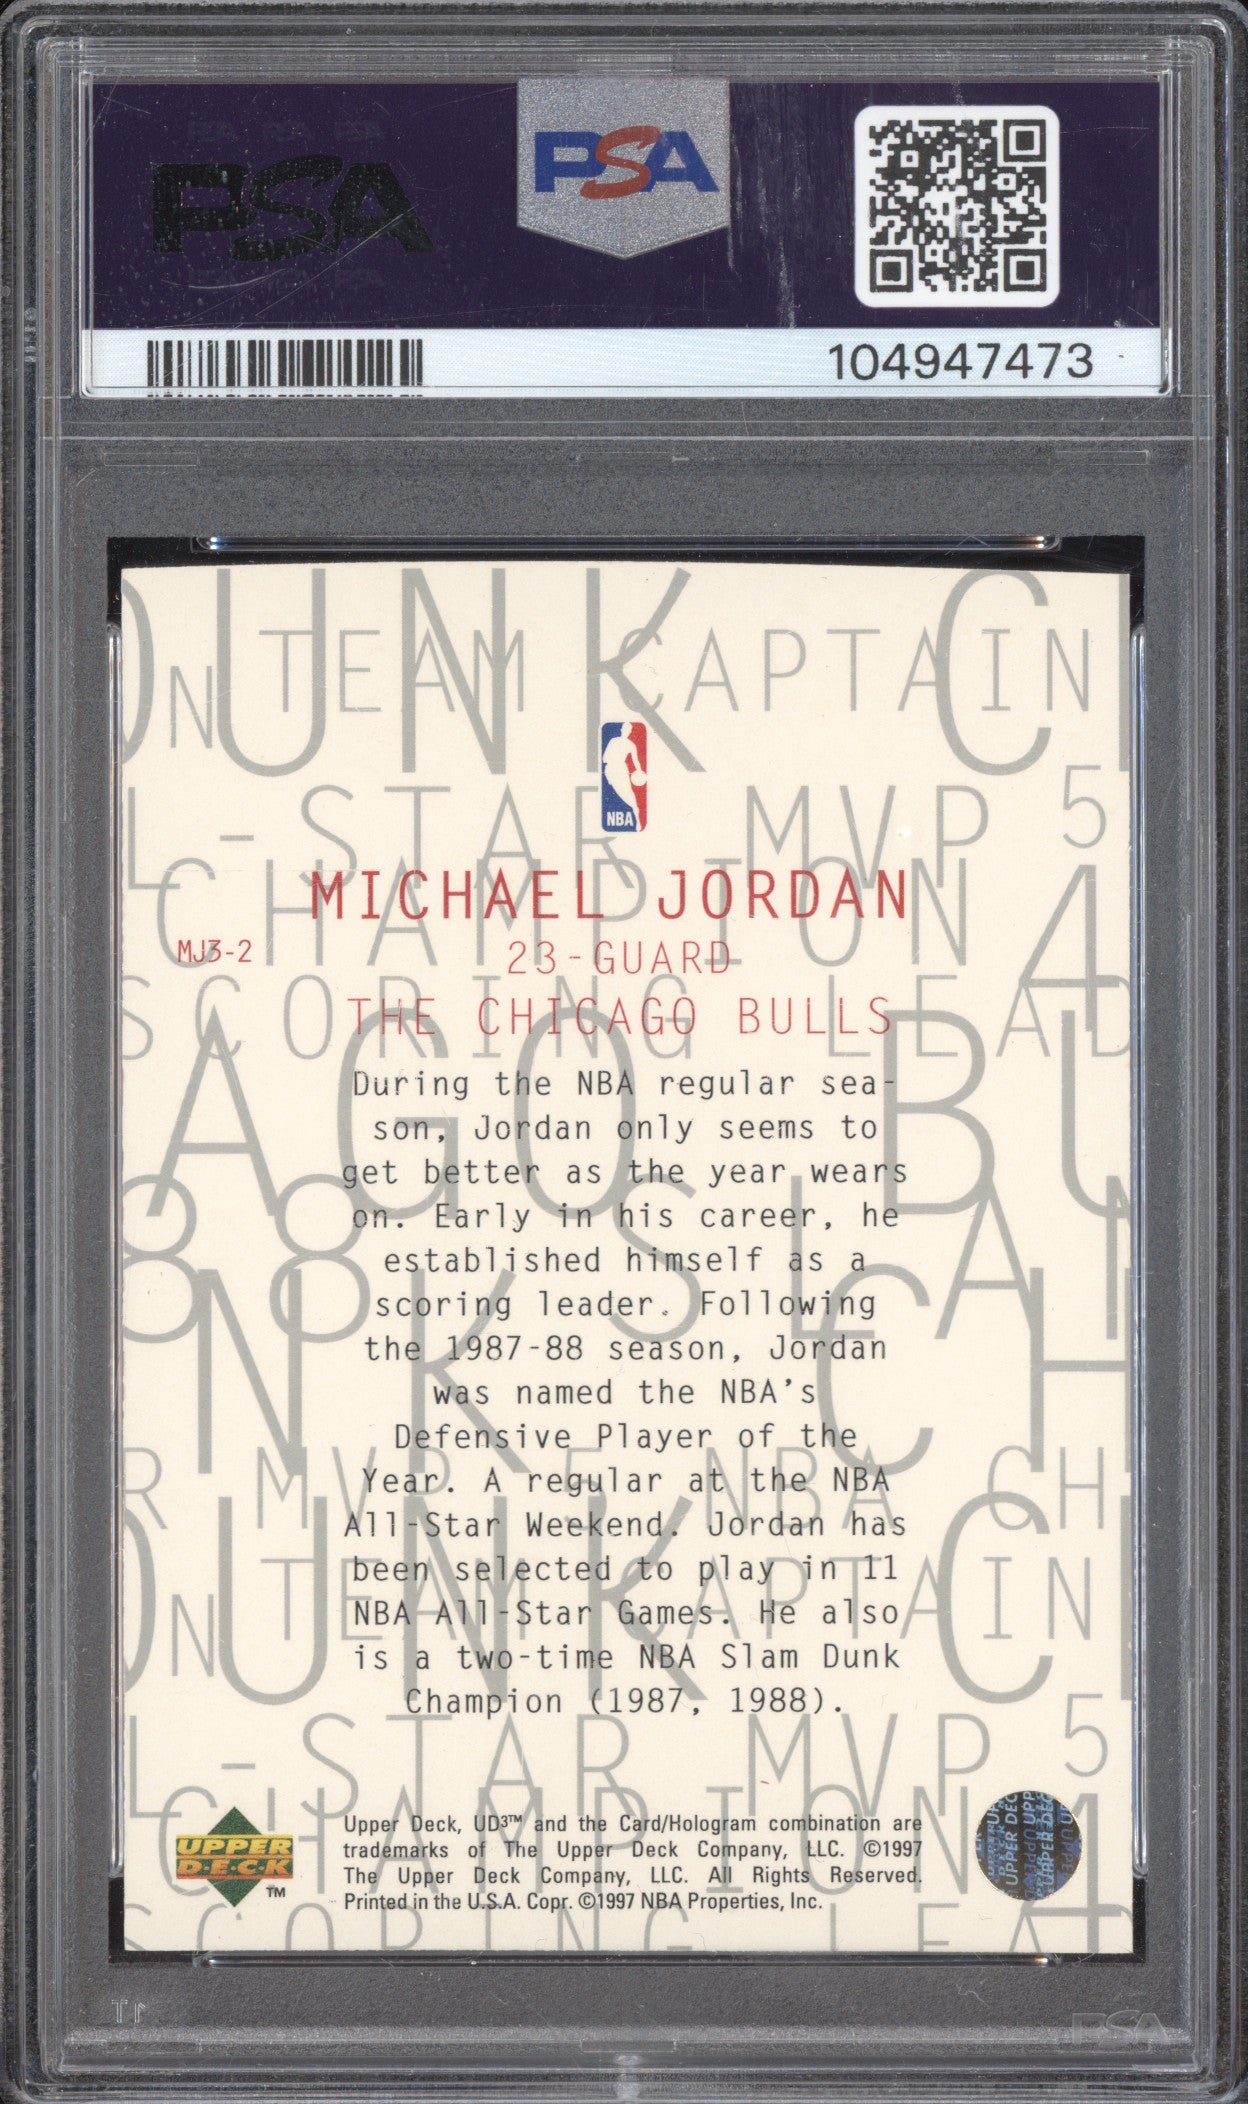 PSA
PSA
104947473
DUNK C
N TEAM CAPTAIN
NBA
L-STAR MVP 5
CHAMPION 4
MICHAEL JORDAN
MJ3-2
23-GUARD
SCORING LEAD
THE CHICAGO BULLS
AGO BU
During the NBA regular sea-
son, Jordan only seems to
get better as the year wears
on. Early in his career, he
established himself as a
scoring leader. Following
the 1987-88 season, Jordan
was named the NBA's
Defensive Player of the
Year. A regular at the NBA
All-Star Weekend. Jordan has
been selected to play in 11
NBA All-Star Games. He also
is a two-time NBA Slam Dunk
Champion (1987, 1988).
88 SLAM
NK CH
R MVP 5 NBA CH
DUNK C
N TEAM CAPTAIN
L-STAR MVP 5
CHAMPION 4
UPPER
D·E·C·K
TM
Upper Deck, UD3™ and the Card/Hologram combination are
trademarks of The Upper Deck Company, LLC. ©1997
The Upper Deck Company, LLC. All Rights Reserved.
Printed in the U.S.A. Copr. ©1997 NBA Properties, Inc.
UPPER DEC
SCORING LEAD
PSA